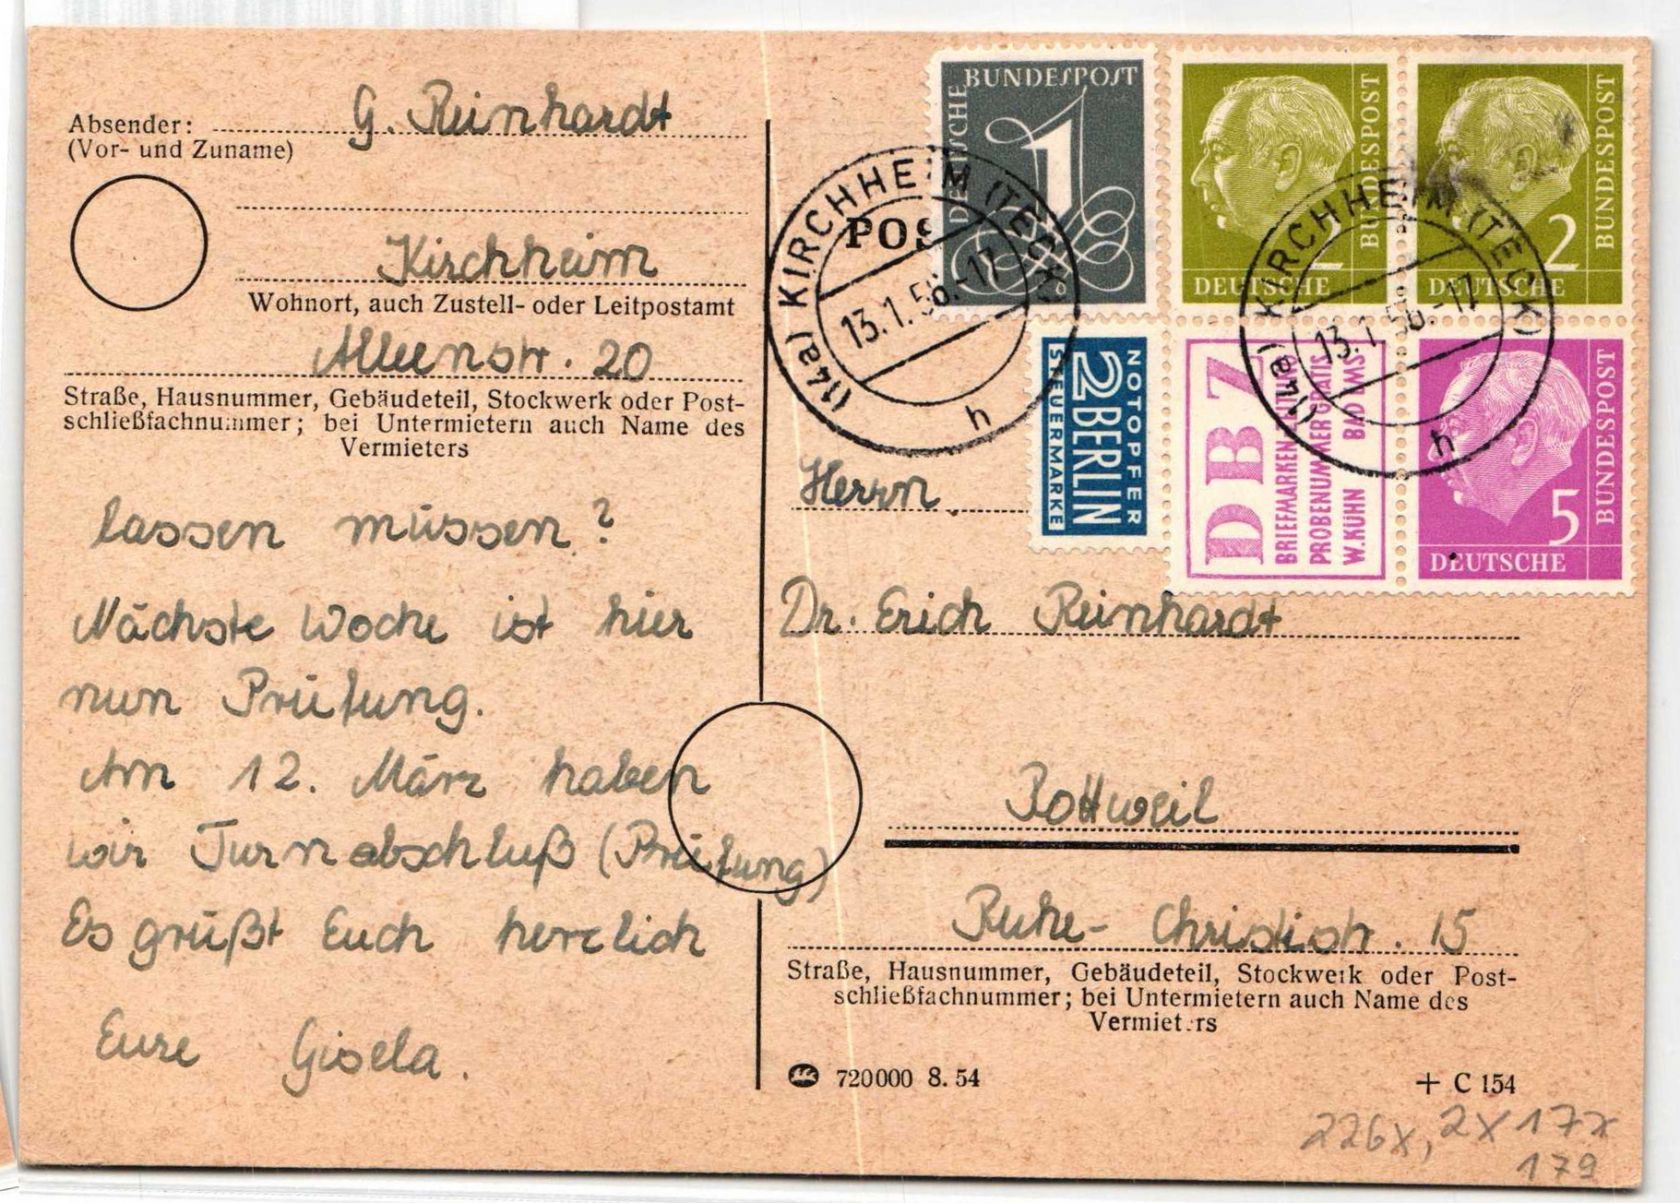 Absender: G. Reinhardt
(Vor- und Zuname)
Kirchheim
Wohnort, auch Zustell- oder Leitpostamt
Alleenstr. 20
Straße, Hausnummer, Gebäudeteil, Stockwerk oder Post-
schließfachnummer; bei Untermietern auch Name des
Vermieters
lassen müssen?
Nächste Woche ist hier
nun Prüfung.
Am 12. März haben
wir Turnabschluß (Prüfung)
Es grüßt Euch herzlich
Eure Gisela.
POS
DEUTSCHE BUNDESPOST
1
DEUTSCHE BUNDESPOST
2
DEUTSCHE BUNDESPOST
2
(14a) KIRCHHEIM (TECK)
13.1.56.-17
h
(14a) KIRCHHEIM (TECK)
13.1.56.-17
h
NOTOPFER
2 BERLIN
STEUERMARKE
DBZ
BRIEFMARKEN
PROBENUMMER GRATIS
W. KUHN BAD EMS
DEUTSCHE BUNDESPOST
5
Herrn
Dr. Erich Reinhardt
Rottweil
Ruhe-Christistr. 15
Straße, Hausnummer, Gebäudeteil, Stockwerk oder Post-
schließfachnummer; bei Untermietern auch Name des
Vermieters
720000 8. 54
+ C 154
226x, 2x 177x
179